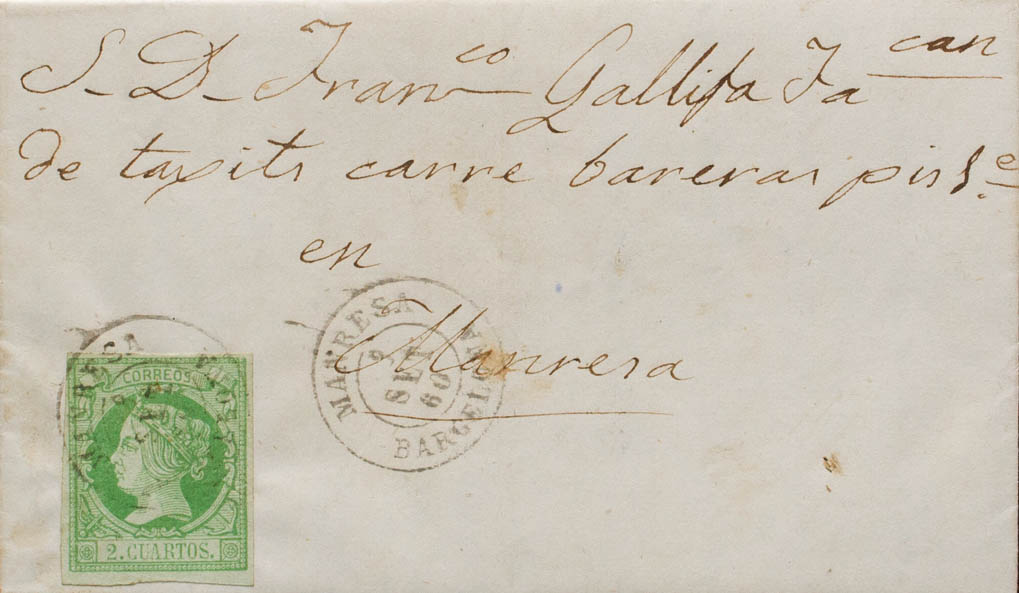 S. D. Franco Gallifa Facan
de taxits carre bareras pis 1e
en
Manresa
MANRESA
BARCELONA
19 SET 60
MANRESA
CORREOS
2. CUARTOS.